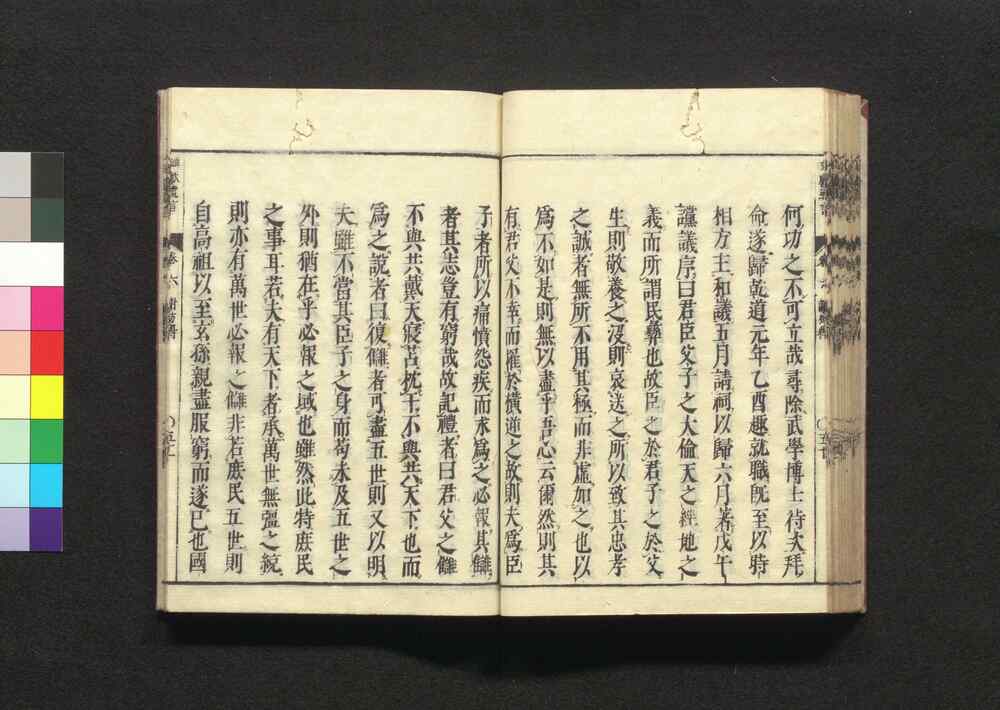 何功之不可立哉尋除武學博士待次拜
命遂歸乾道元年乙酉趣就職既至以時
相方主和議五月請祠以歸六月著戊午
讜議序曰君臣父子之大倫天之經地之
義而所謂民彝也故臣之於君子之於父
生則敬養之沒則哀送之所以致其忠孝
之誠者無所不用其極而非虛加之也以
爲不如是則無以盡乎吾心云爾然則其
有君父不幸而罹於橫逆之故則夫爲臣
子者所以痛憤怨疾而求爲之必報其讎
者其志豈有窮哉故記禮者曰君父之讎
不與共戴天寢苫枕干不與共天下也而
爲之說者曰復讎者可盡五世則又以明
夫雖不當其臣子之身而苟未及五世之
外則猶在乎必報之域也雖然此特庶民
之事耳若夫有天下者承萬世無疆之統
則亦有萬世必報之讎非若庶民五世則
自高祖以至玄孫親盡服窮而遂已也國
卷六